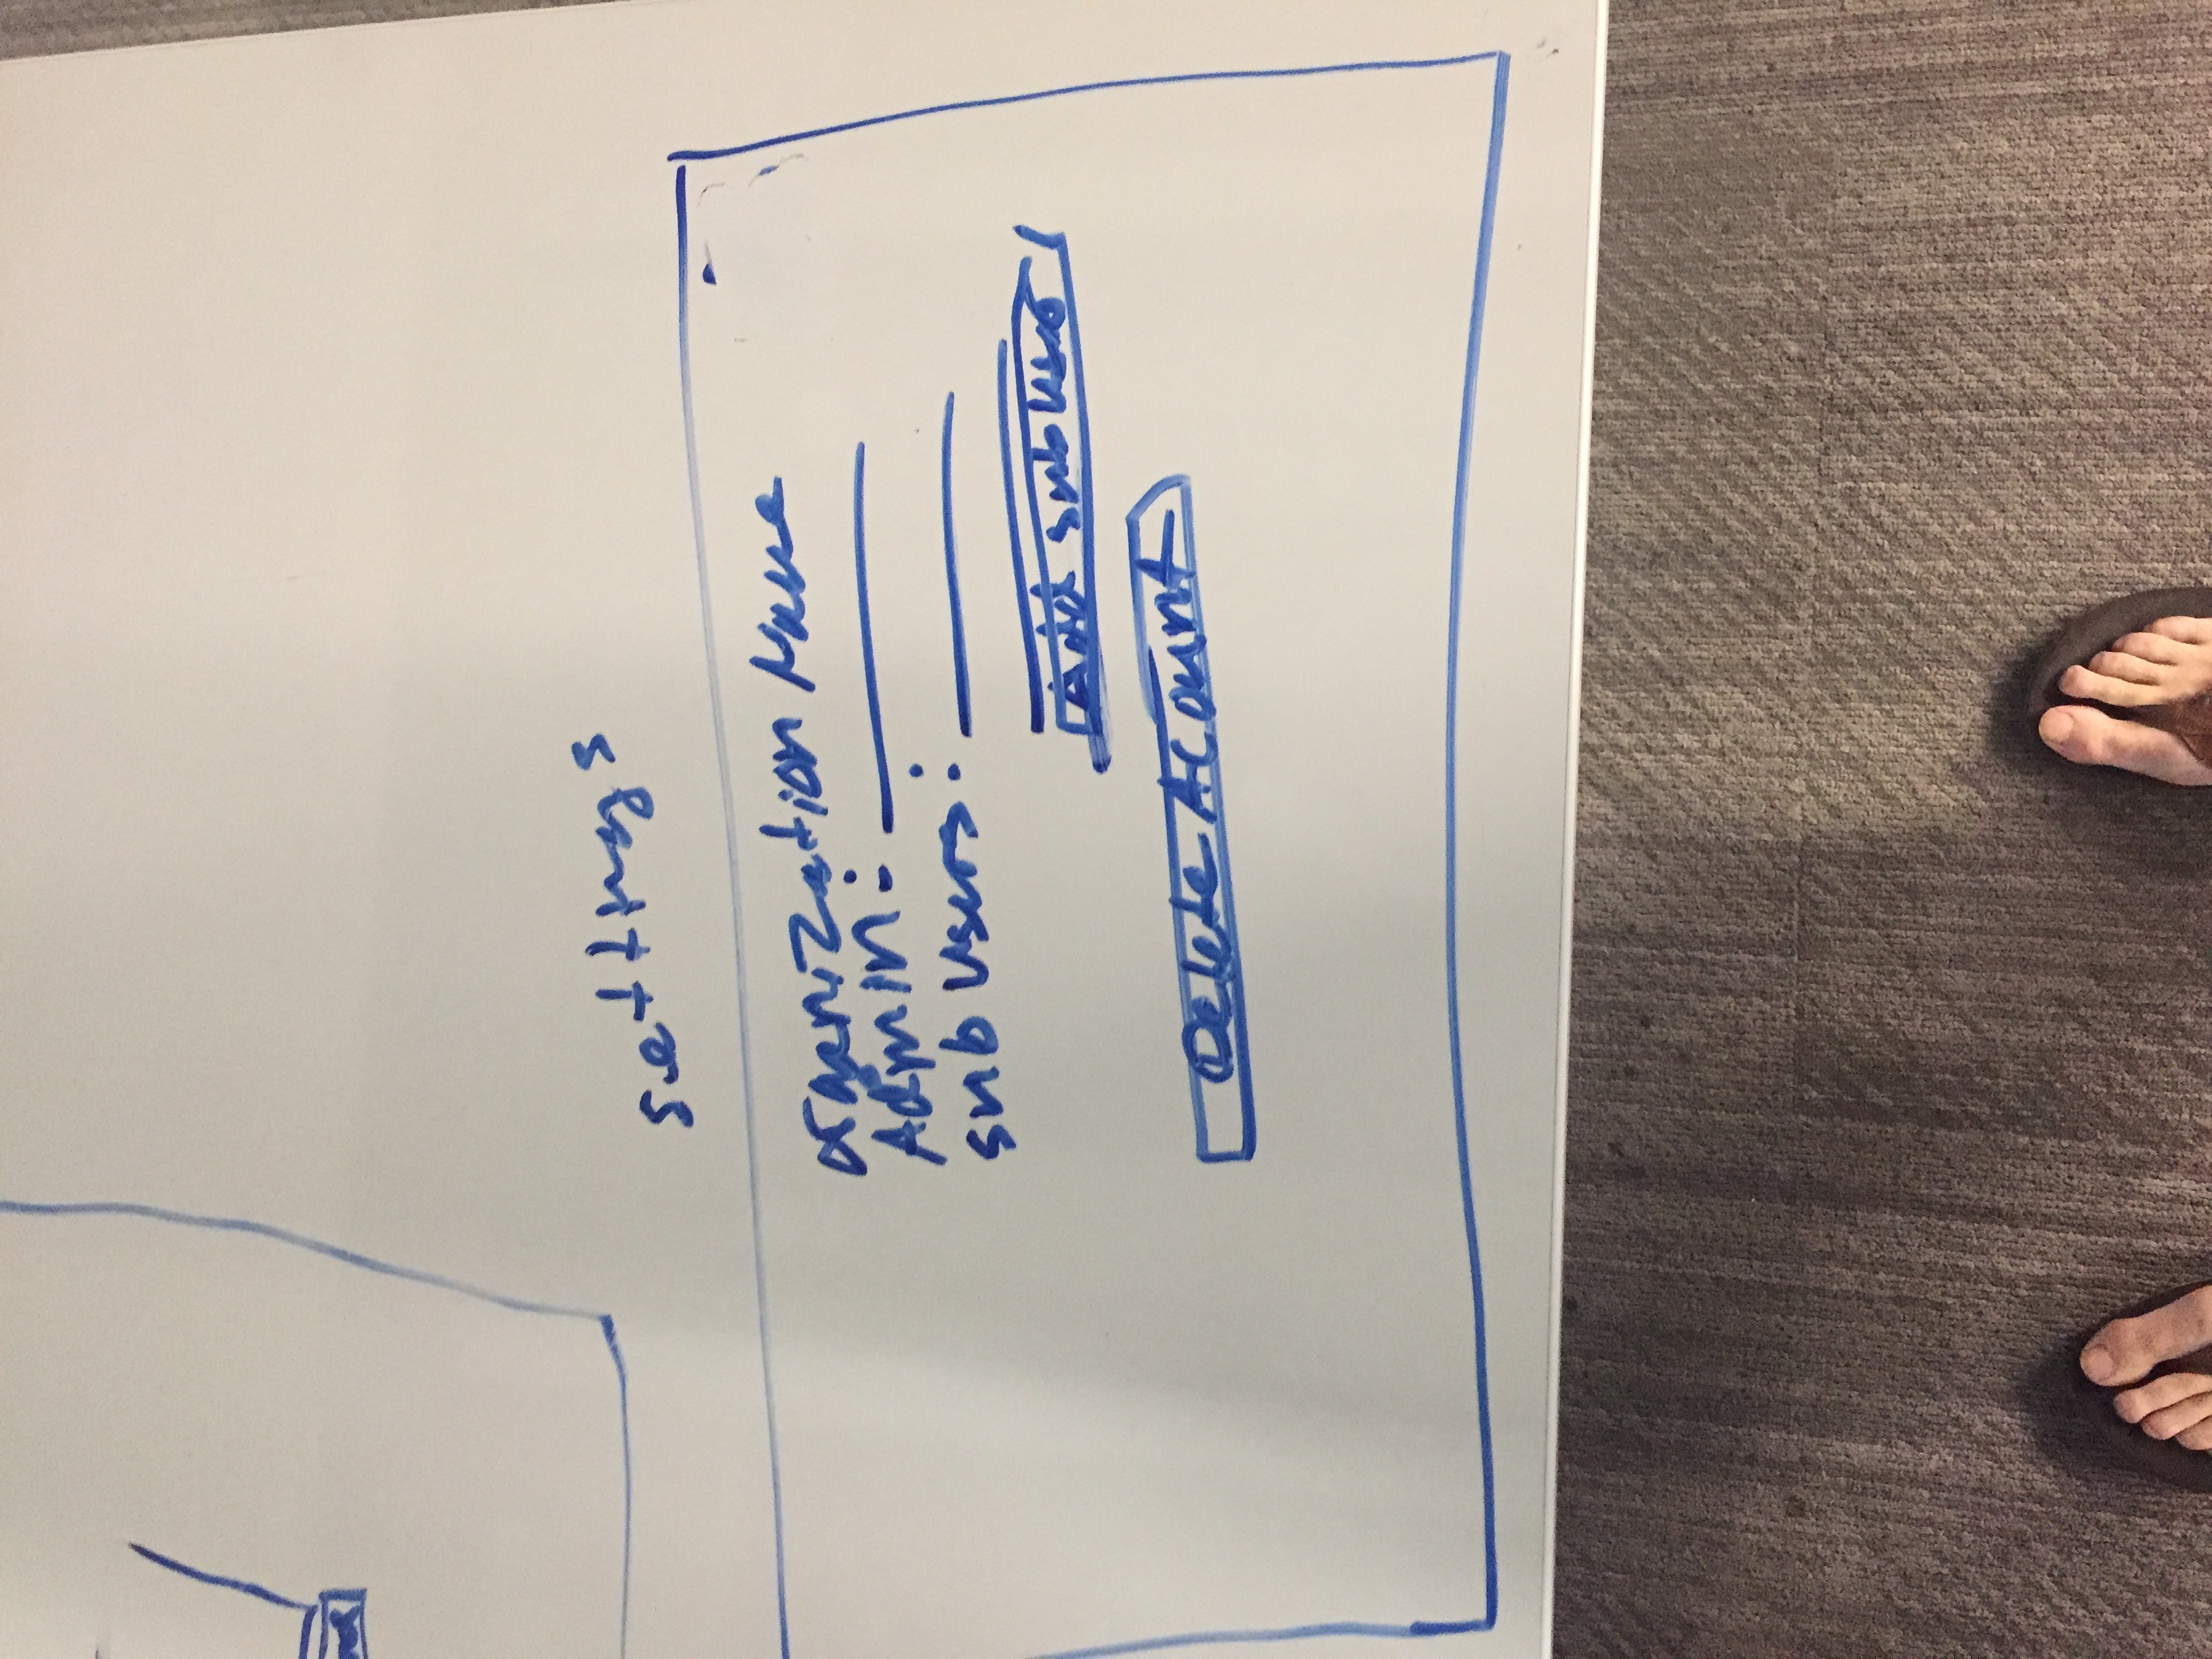 settings
organization Name
Admin:
sub users:
Add sub user
Delete Account